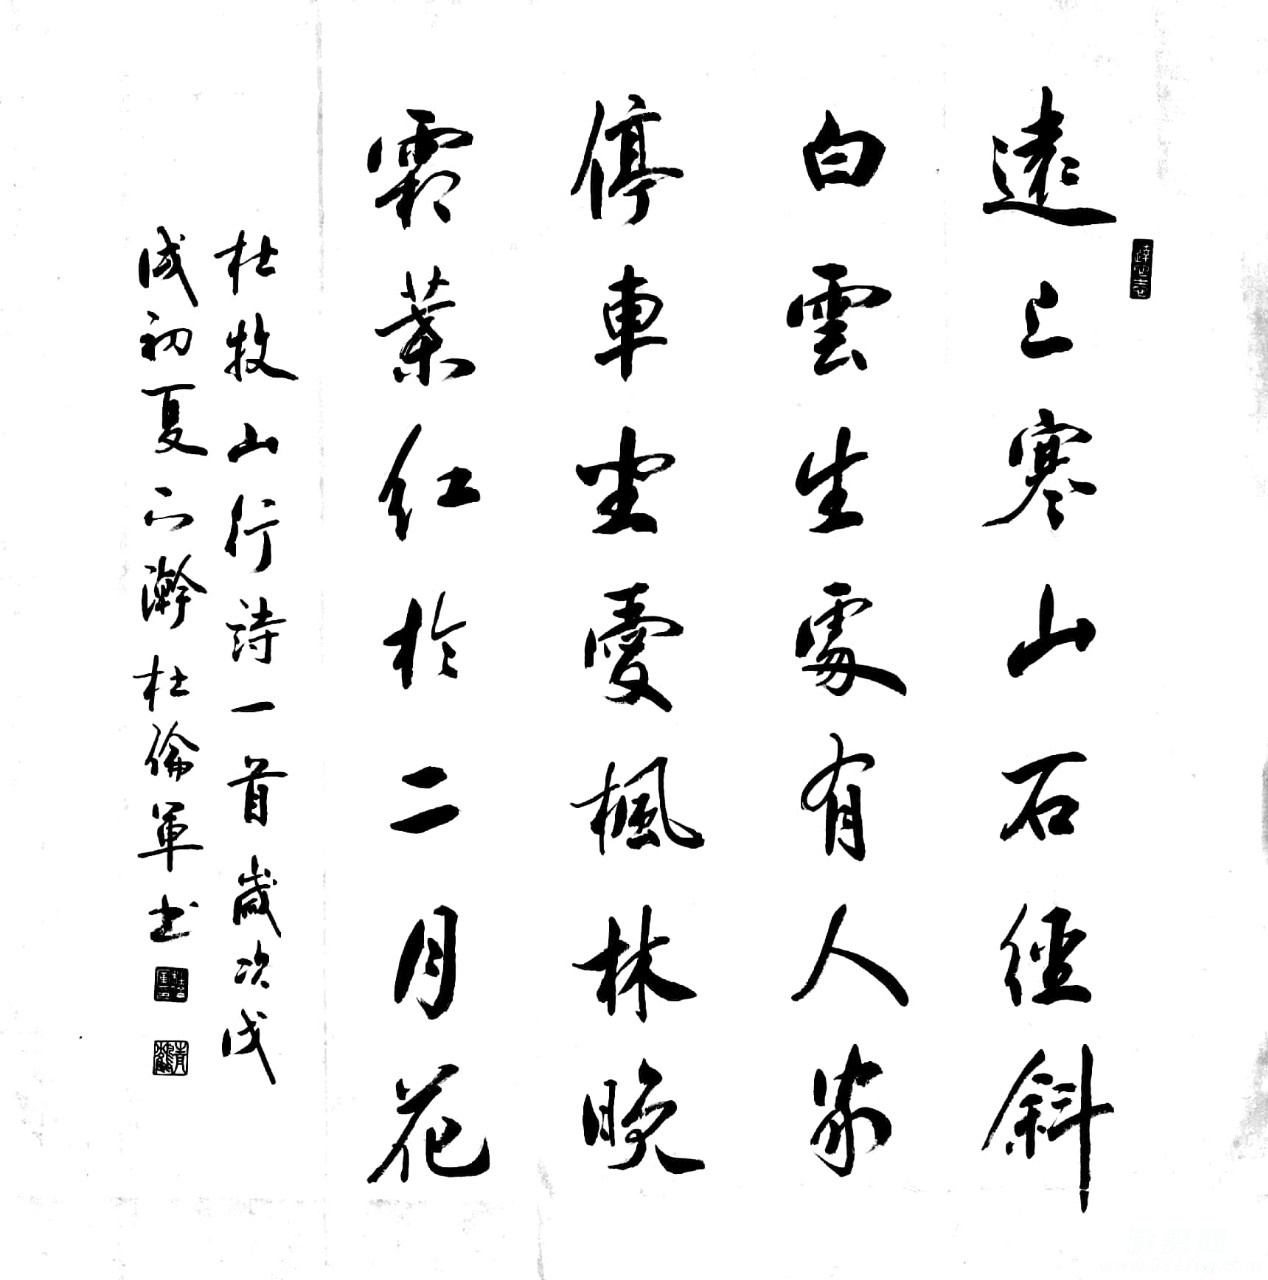 遠上寒山石徑斜
白雲生處有人家
停車坐愛楓林晚
霜葉紅於二月花
杜牧山行詩一首歲次戊
戌初夏
杜倫軍书